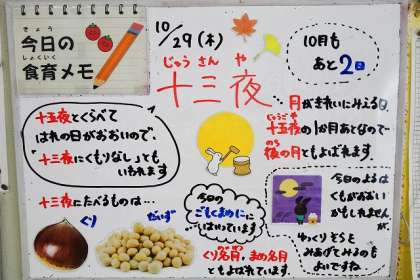 きょう
今日の
しょくいく
食育メモ
10/29(木)
じゅうさんや
十三夜
10月も
あと2日
月がきれいにみえる日。
じゅうごや
十五夜の1か月あとなので
のち
後の月ともよばれます
十五夜とくらべて
はれの日がおおいので、
「十三夜にくもりなし」とも
いわれます
十三夜にたべるものは…
くり
だいず
今日の
ごもくまめに
はいっています
くり名月、まめ名月
ともよばれています
今日のよるは
くもがおおい
かもしれませんが、
ゆっくりそらを
みあげてみるのも
よいですね